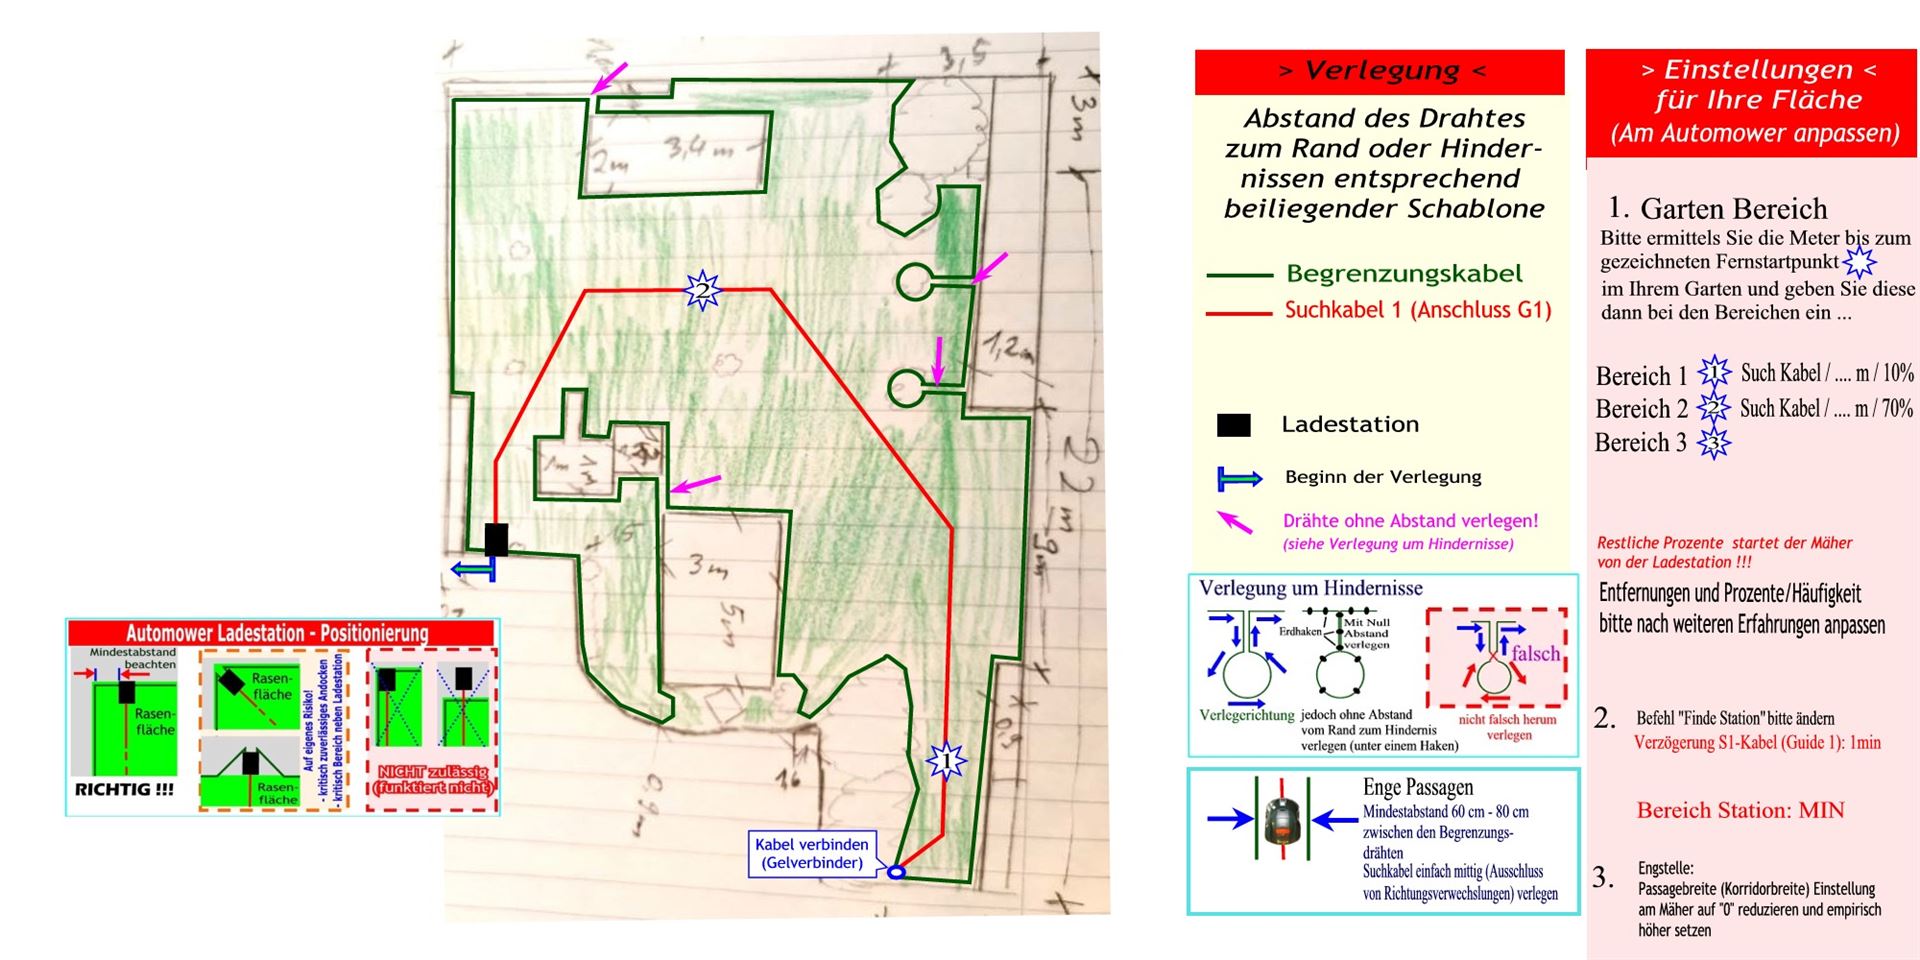 3,5
3m
2m
3,4 m
1,2m
22 m
9m
1m
1m
3m
5m
0,9m
2
1
Kabel verbinden
(Gelverbinder)
Automower Ladestation - Positionierung
Mindestabstand
beachten
Rasen-
fläche
RICHTIG !!!
Rasen-
fläche
Rasen-
fläche
Auf eigenes Risiko!
- kritisch zuverlässiges Andocken
- kritisch Bereich neben Ladestation
NICHT zulässig
(funktiert nicht)
> Verlegung <
Abstand des Drahtes
zum Rand oder Hinder-
nissen entsprechend
beiliegender Schablone
Begrenzungskabel
Suchkabel 1 (Anschluss G1)
Ladestation
Beginn der Verlegung
Drähte ohne Abstand verlegen!
(siehe Verlegung um Hindernisse)
Verlegung um Hindernisse
Erdhaken
Mit Null
Abstand
verlegen
falsch
Verlegerichtung
jedoch ohne Abstand
vom Rand zum Hindernis
verlegen (unter einem Haken)
nicht falsch herum
verlegen
Enge Passagen
Mindestabstand 60 cm - 80 cm
zwischen den Begrenzungs-
drähten
Suchkabel einfach mittig (Ausschluss
von Richtungsverwechslungen) verlegen
> Einstellungen <
für Ihre Fläche
(Am Automower anpassen)
1. Garten Bereich
Bitte ermittels Sie die Meter bis zum
gezeichneten Fernstartpunkt
im Ihrem Garten und geben Sie diese
dann bei den Bereichen ein ...
Bereich 1 1 Such Kabel / .... m / 10%
Bereich 2 2 Such Kabel / .... m / 70%
Bereich 3 3
Restliche Prozente startet der Mäher
von der Ladestation !!!
Entfernungen und Prozente/Häufigkeit
bitte nach weiteren Erfahrungen anpassen
2. Befehl "Finde Station" bitte ändern
Verzögerung S1-Kabel (Guide 1): 1min
Bereich Station: MIN
3. Engstelle:
Passagebreite (Korridorbreite) Einstellung
am Mäher auf "0" reduzieren und empirisch
höher setzen